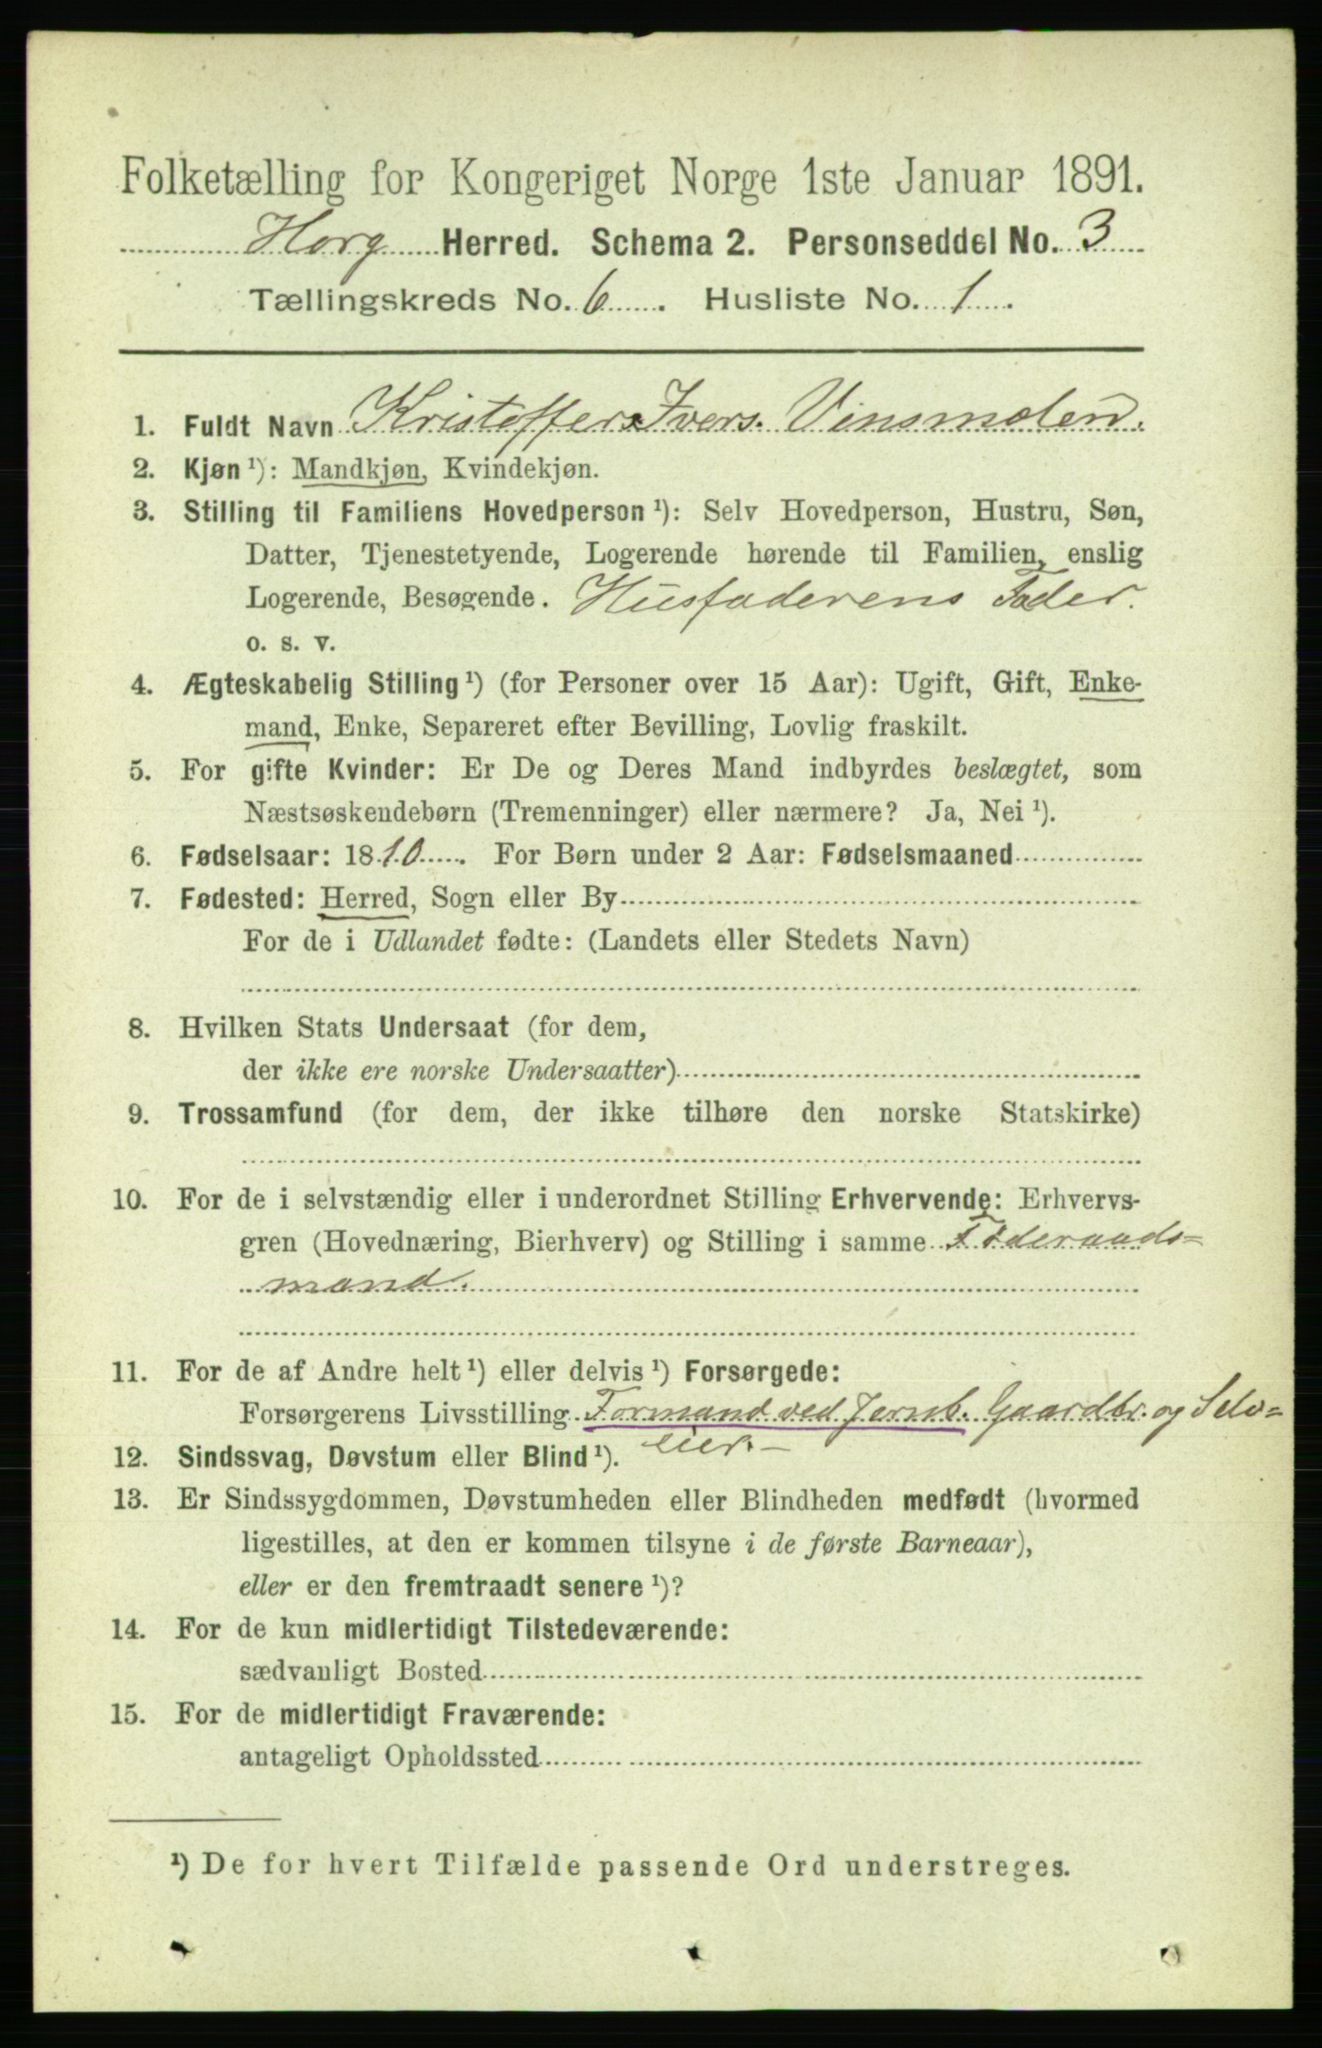 Folketælling for Kongeriget Norge 1ste Januar 1891.
Horg Herred. Schema 2. Personseddel No. 3
Tællingskreds No. 6. Husliste No. 1.
1. Fuldt Navn Kristoffer Ivers. Vinsmolen.
2. Kjøn ¹): Mandkjøn, Kvindekjøn.
3. Stilling til Familiens Hovedperson ¹): Selv Hovedperson, Hustru, Søn,
Datter, Tjenestetyende, Logerende hørende til Familien, enslig
Logerende, Besøgende. Husfaderens Fader.
o. s. v.
4. Ægteskabelig Stilling ¹) (for Personer over 15 Aar): Ugift, Gift, Enke-
mand, Enke, Separeret efter Bevilling, Lovlig fraskilt.
5. For gifte Kvinder: Er De og Deres Mand indbyrdes beslægtet, som
Næstsøskendebørn (Tremenninger) eller nærmere? Ja, Nei ¹).
6. Fødselsaar: 1810. For Børn under 2 Aar: Fødselsmaaned
7. Fødested: Herred, Sogn eller By
For de i Udlandet fødte: (Landets eller Stedets Navn)
8. Hvilken Stats Undersaat (for dem,
der ikke ere norske Undersaatter)
9. Trossamfund (for dem, der ikke tilhøre den norske Statskirke)
10. For de i selvstændig eller i underordnet Stilling Erhvervende: Erhvervs-
gren (Hovednæring, Bierhverv) og Stilling i samme Föderaads=
mand.
11. For de af Andre helt ¹) eller delvis ¹) Forsørgede:
Forsørgerens Livsstilling Formand ved Jernb. Gaardbr. og Selv=
eier.—
12. Sindssvag, Døvstum eller Blind ¹).
13. Er Sindssygdommen, Døvstumheden eller Blindheden medfødt (hvormed
ligestilles, at den er kommen tilsyne i de første Barneaar),
eller er den fremtraadt senere ¹)?
14. For de kun midlertidigt Tilstedeværende:
sædvanligt Bosted
15. For de midlertidigt Fraværende:
antageligt Opholdssted
¹) De for hvert Tilfælde passende Ord understreges.